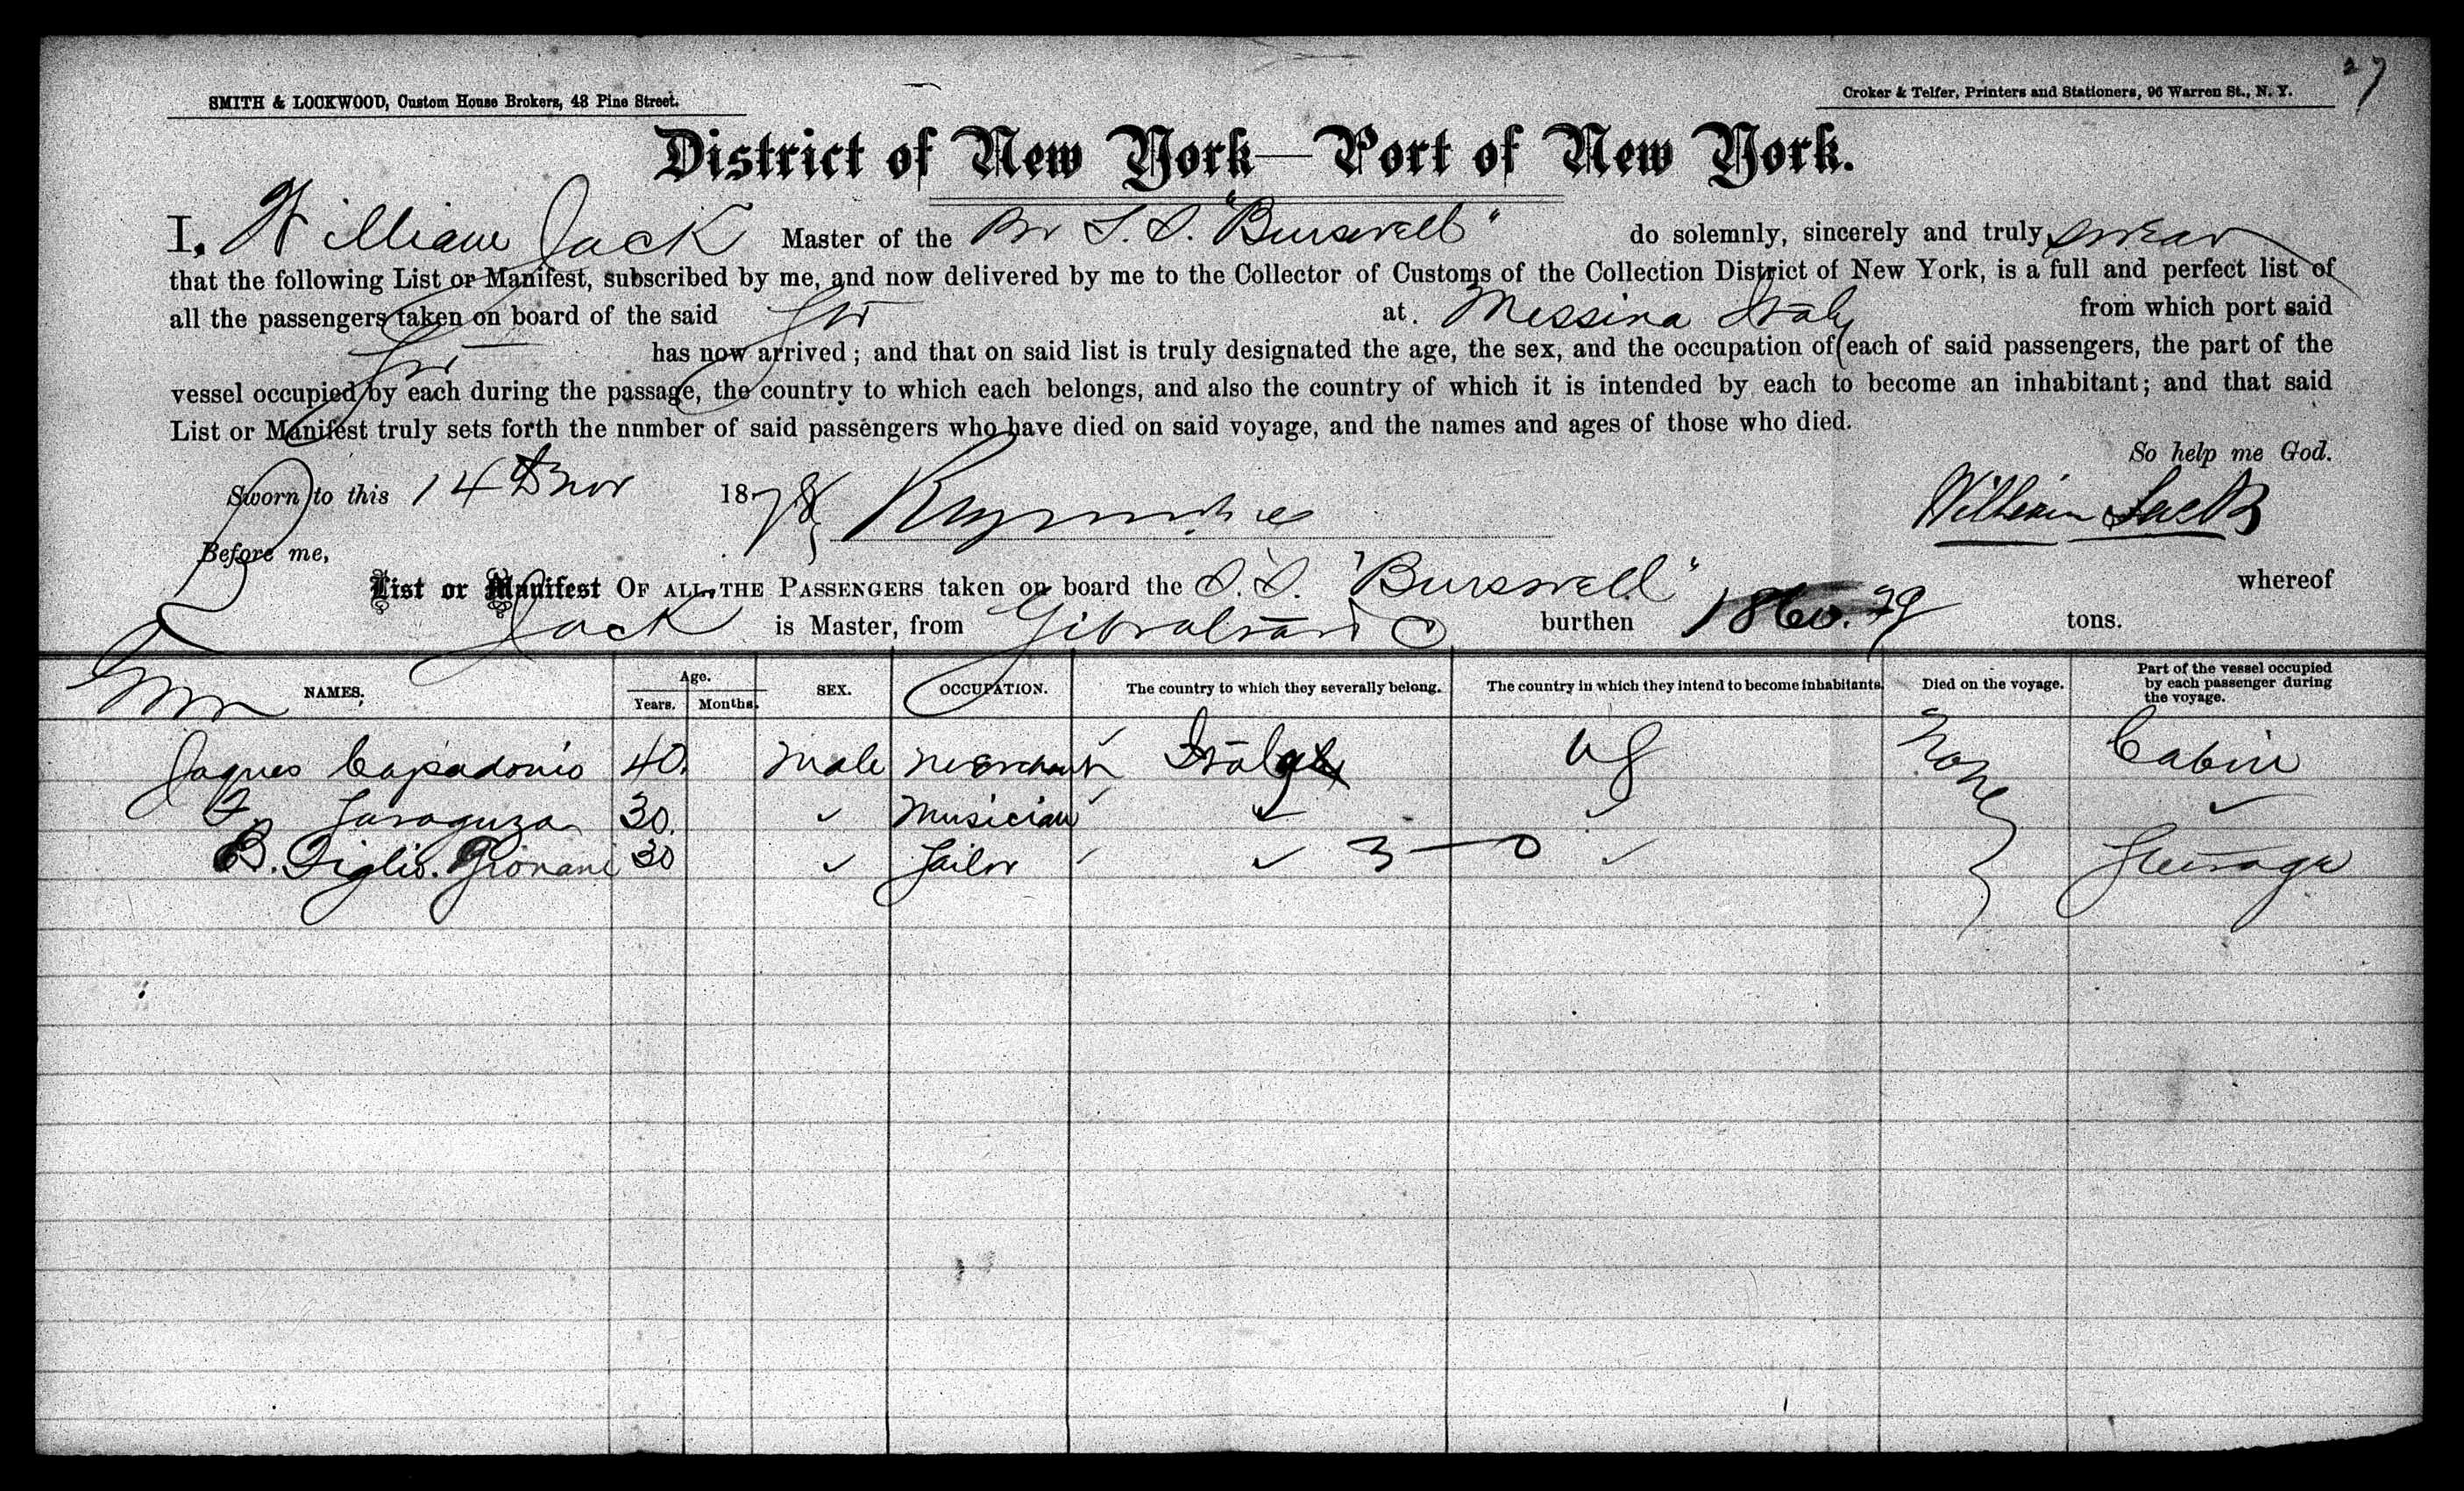 27
SMITH & LOCKWOOD, Custom House Brokers, 48 Pine Street.
Croker & Telfer, Printers and Stationers, 96 Warren St., N. Y.
District of New York—Port of New York.
I, William Jack Master of the Br S.S. "Burswell" do solemnly, sincerely and truly swear
that the following List or Manifest, subscribed by me, and now delivered by me to the Collector of Customs of the Collection District of New York, is a full and perfect list of
all the passengers taken on board of the said Str at. Messina Italy from which port said
Str has now arrived; and that on said list is truly designated the age, the sex, and the occupation of each of said passengers, the part of the
vessel occupied by each during the passage, the country to which each belongs, and also the country of which it is intended by each to become an inhabitant; and that said
List or Manifest truly sets forth the nnmber of said passengers who have died on said voyage, and the names and ages of those who died.
So help me God.
Sworn to this 14th Nov 1878 William Jack
Before me,
List or Manifest OF ALL THE PASSENGERS taken on board the S.S. "Burswell" whereof
Jack is Master, from Gibraltar burthen 1860.79 tons.
NAMES. Age. Years. Months. SEX. OCCUPATION. The country to which they severally belong. The country in which they intend to become inhabitants. Died on the voyage. Part of the vessel occupied by each passenger during the voyage.
Jaques Capadonio 40. Male Merchant Italy US None Cabin
F. Saraguza 30. ✓ Musician ✓ ✓ ✓
B. Figlio. Giovani 30 ✓ Tailor ✓ 3—0 ✓ Steerage